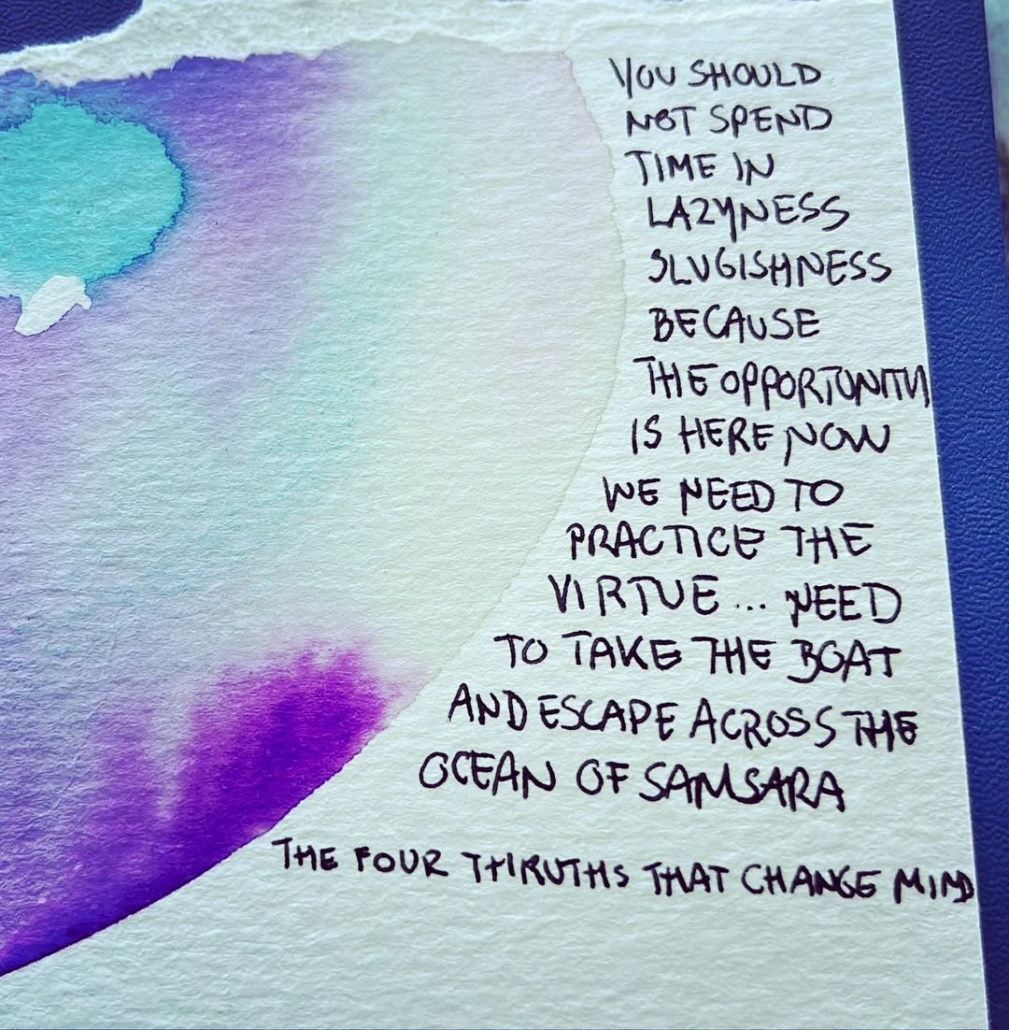 YOU SHOULD
NOT SPEND
TIME IN
LAZYNESS
SLUGISHNESS
BECAUSE
THE OPPORTUNITY
IS HERE NOW
WE NEED TO
PRACTICE THE
VIRTUE... NEED
TO TAKE THE BOAT
AND ESCAPE ACROSS THE
OCEAN OF SAMSARA
THE FOUR THIRUTHS THAT CHANGE MIND